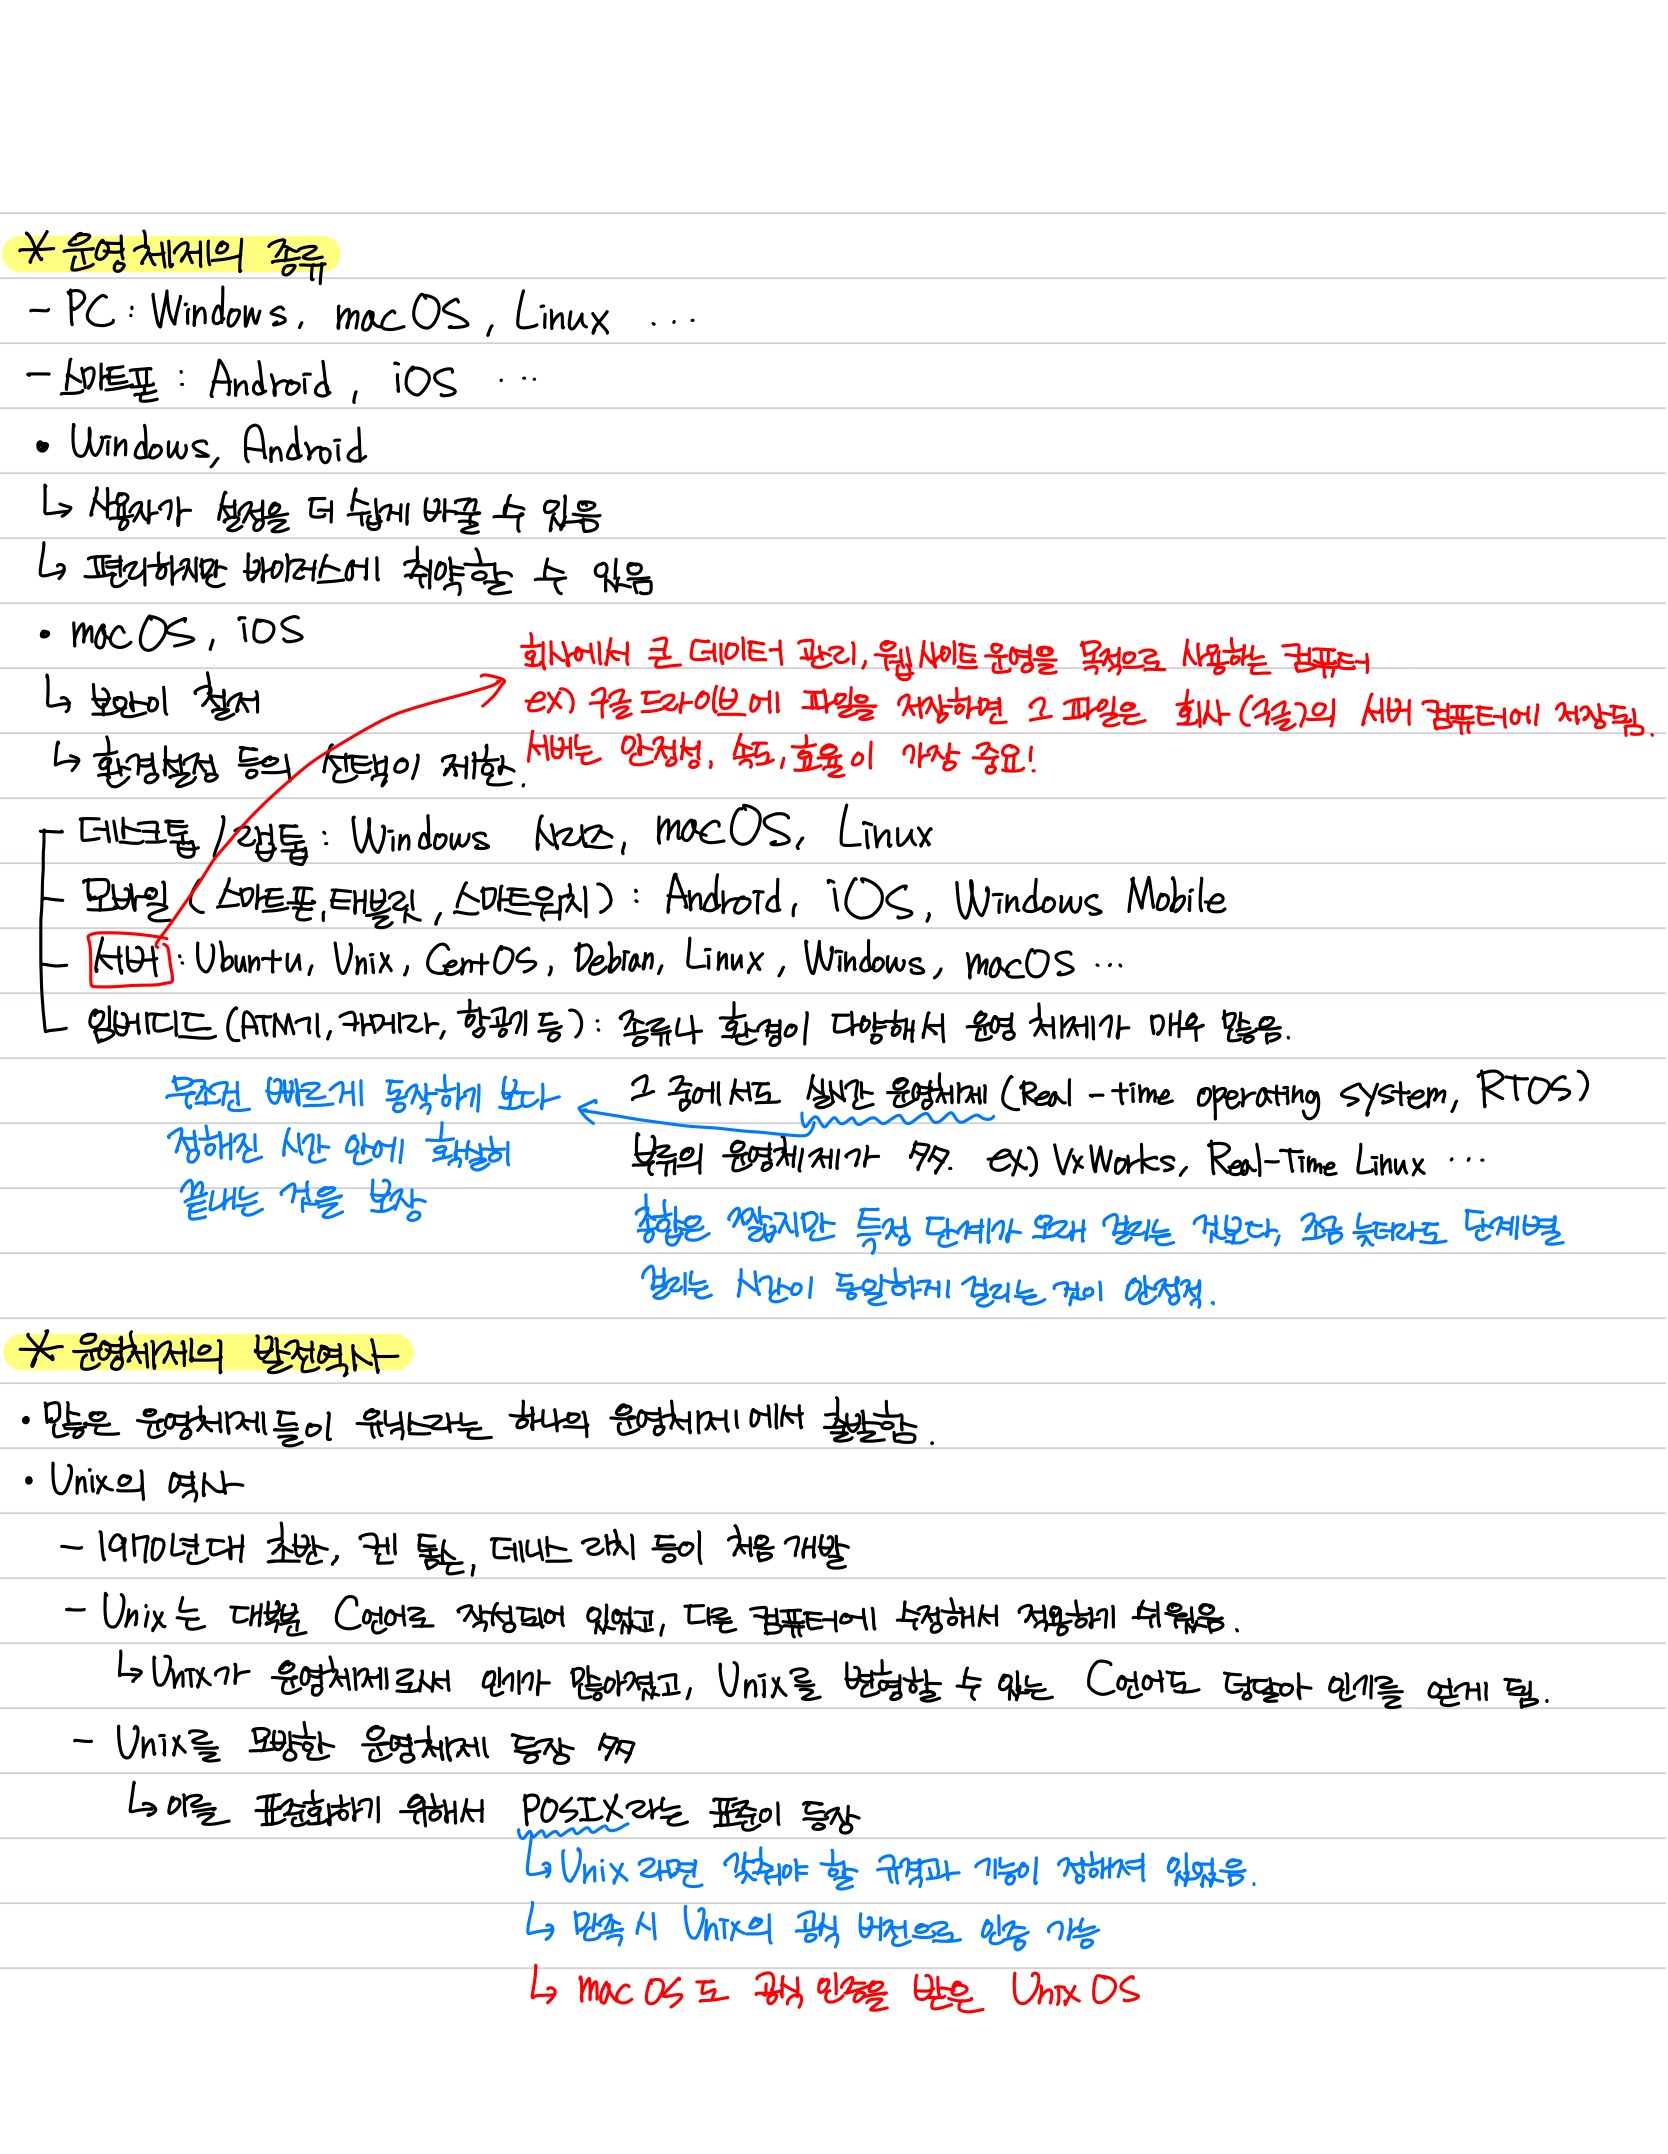 * 운영체제의 종류
- PC : Windows, macOS, Linux ...
- 스마트폰 : Android, iOS ...
• Windows, Android
↳ 사용자가 설정을 더 쉽게 바꿀 수 있음
↳ 편리하지만 바이러스에 취약할 수 있음
• macOS, iOS
↳ 보안이 철저
↳ 환경설정 등의 선택이 제한.
회사에서 큰 데이터 관리, 웹사이트 운영을 목적으로 사용하는 컴퓨터
ex) 구글 드라이브에 파일을 저장하면 그 파일은 회사(구글)의 서버 컴퓨터에 저장됨.
서버는 안정성, 속도, 효율이 가장 중요!
- 데스크톱 / 랩톱 : Windows 시리즈, macOS, Linux
- 모바일 (스마트폰, 태블릿, 스마트워치) : Android, iOS, Windows Mobile
- 서버 : Ubuntu, Unix, CentOS, Debian, Linux, Windows, macOS ...
- 임베디드 (ATM기, 카메라, 항공기 등) : 종류나 환경이 다양해서 운영 체제가 매우 많음.
그 중에서도 실시간 운영체제 (Real-time operating system, RTOS)
부류의 운영체제가 多多. ex) VxWorks, Real-Time Linux ...
무조건 빠르게 동작하기 보다
정해진 시간 안에 확실히
끝내는 것을 보장
총합은 짧지만 특정 단계가 오래 걸리는 것보다, 조금 늦더라도 단계별
걸리는 시간이 동일하게 걸리는 것이 안정적.
* 운영체제의 발전역사
• 많은 운영체제들이 유닉스라는 하나의 운영체제에서 출발함.
• Unix의 역사
- 1970년대 초반, 켄 톰슨, 데니스 리치 등이 처음 개발
- Unix는 대부분 C언어로 작성되어 있었고, 다른 컴퓨터에 수정해서 적용하기 쉬웠음.
↳ Unix가 운영체제로써 인기가 많아졌고, Unix를 변형할 수 있는 C언어도 덩달아 인기를 얻게 됨.
- Unix를 모방한 운영체제 등장 多多
↳ 이를 표준화하기 위해서 POSIX라는 표준이 등장
↳ Unix라면 갖춰야 할 규격과 기능이 정해져 있었음.
↳ 만족 시 Unix의 공식 버전으로 인증 가능
↳ macOS도 공식 인증을 받은 Unix OS